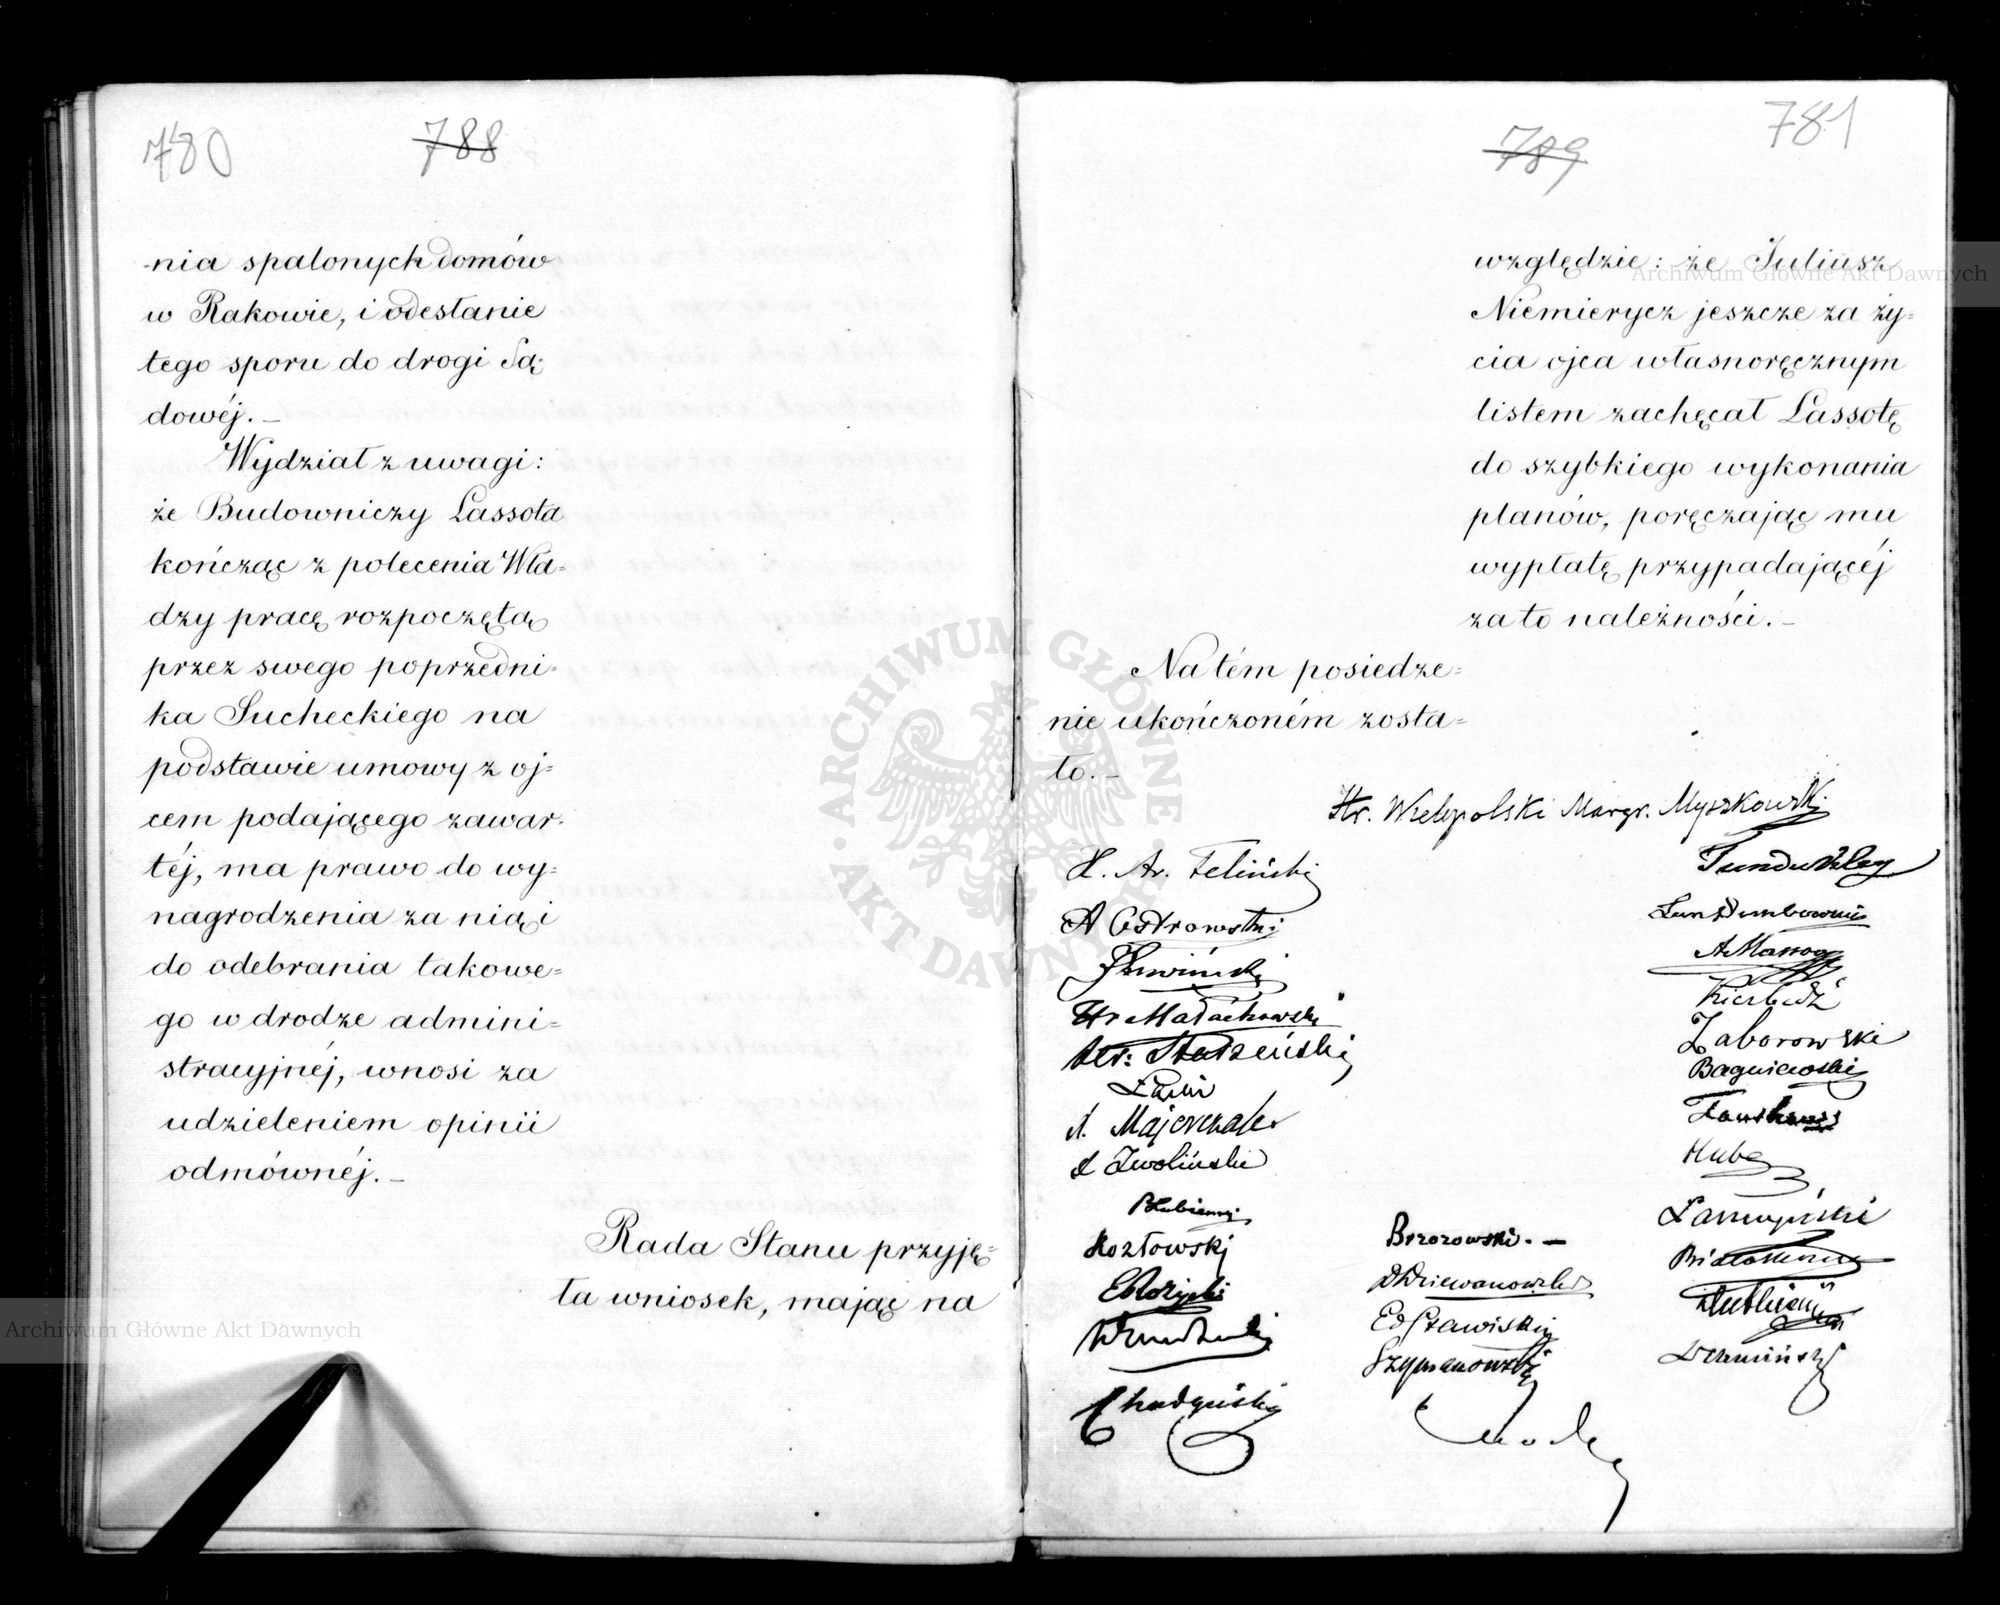 780
788
nia spalonych domów
w Rakowie, i odesłanie
tego sporu do drogi Są-
dowéj. –
Wydział z uwagi:
że Budowniczy Lassota
kończąc z polecenia Wła-
dzy pracę rozpoczętą
przez swego poprzedni-
ka Sucheckiego na
podstawie umowy z oj-
cem podającego zawar-
téj, ma prawo do wy-
nagrodzenia za nią i
do odebrania takowe-
go w drodze admini-
stracyjnéj, wnosi za
udzieleniem opinii
odmównéj. –
Rada Stanu przyję-
ła wniosek, mając na
789
781
względzie: że Juliusz
Niemierycz jeszcze za ży-
cia ojca własnoręcznym
listem zachęcał Lassotę
do szybkiego wykonania
planów, poręczając mu
wypłatę przypadającéj
za to należności. –
Na tém posiedze-
nie ukończoném zosta-
ło. –
Hr. Wielopolski Margr. Myszkowski
Fundukley
Feliński
A Ostrowski
Hr Małachowski
Hr: Starzeński
Zaborowski
Bagniewski
Hube
A. Majerczak
Zwoliński
BŁubieński
Kozłowski
Brzozowski. –
DDziewanowski
Szymanowski
Archiwum Główne Akt Dawnych
Archiwum Główne Akt Dawnych
ARCHIWUM GŁÓWNE AKT DAWNYCH